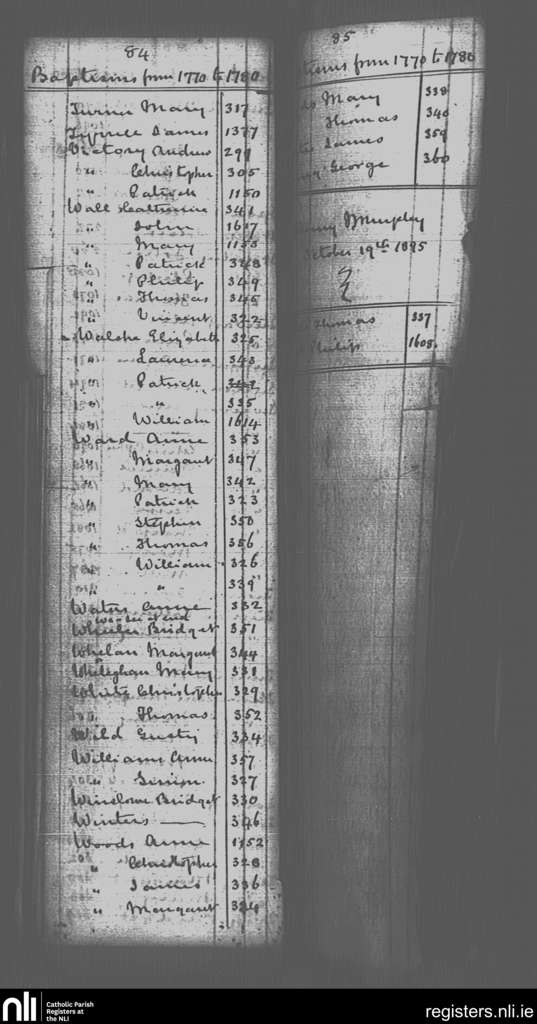 84
Baptisms from 1770 to 1780
Turner Mary 317
Tyrrell James 1377
Victory Andrew 299
" Christopher 305
" Patrick 1150
Wall Catherine 341
" John 1617
" Mary 1153
" Patrick 348
" Philip 349
" Thomas 345
" Vincent 322
Walshe Elizabeth 325
" Laurence 343
" Patrick
" " 335
" William 1614
Ward Anne 353
" Margaret 347
" Mary 342
" Patrick 323
" Stephen 350
" Thomas 356
" William 326
" " 339
Waters Anne 332
Wheeler Bridget 351
Whelan Margaret 344
Mary 331
White Christopher 329
" Thomas 352
Wild 334
Williams Anne 357
" Simon 327
Winslowe Bridget 330
Winters — 346
Woods Anne 1152
" Christopher 328
" James 336
" Margaret 324
85
from 1770 to 1780
Mary 338
Thomas 340
James 359
George 360
Murphy
October 19th 1895
Thomas 337
Philip 1608
nli
Catholic Parish
Registers at
the NLI
registers.nli.ie